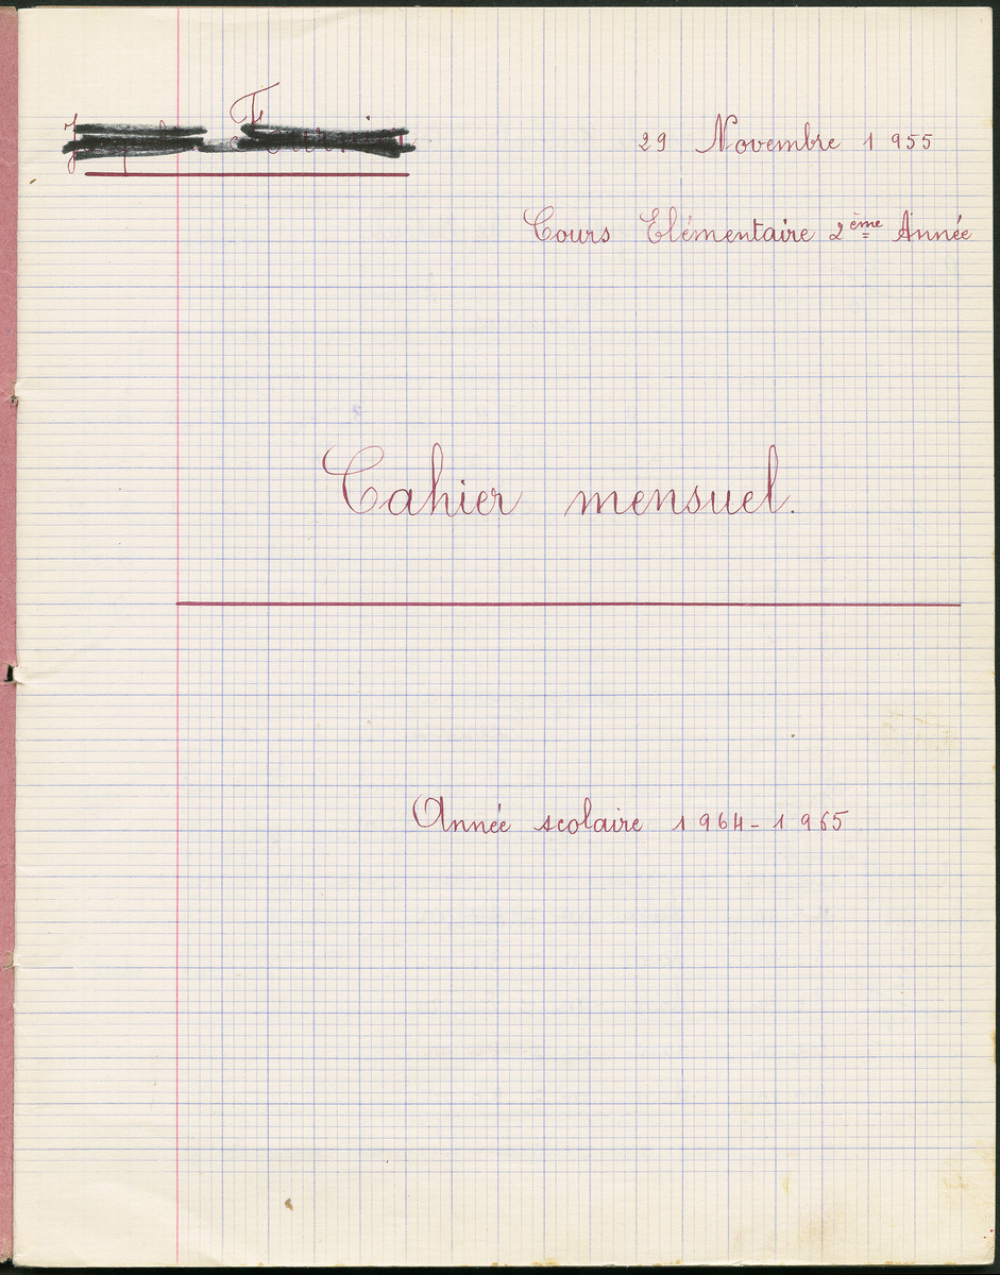 29 Novembre 1955
Cours Elémentaire 2ème Année
Cahier mensuel.
Année scolaire 1964-1965